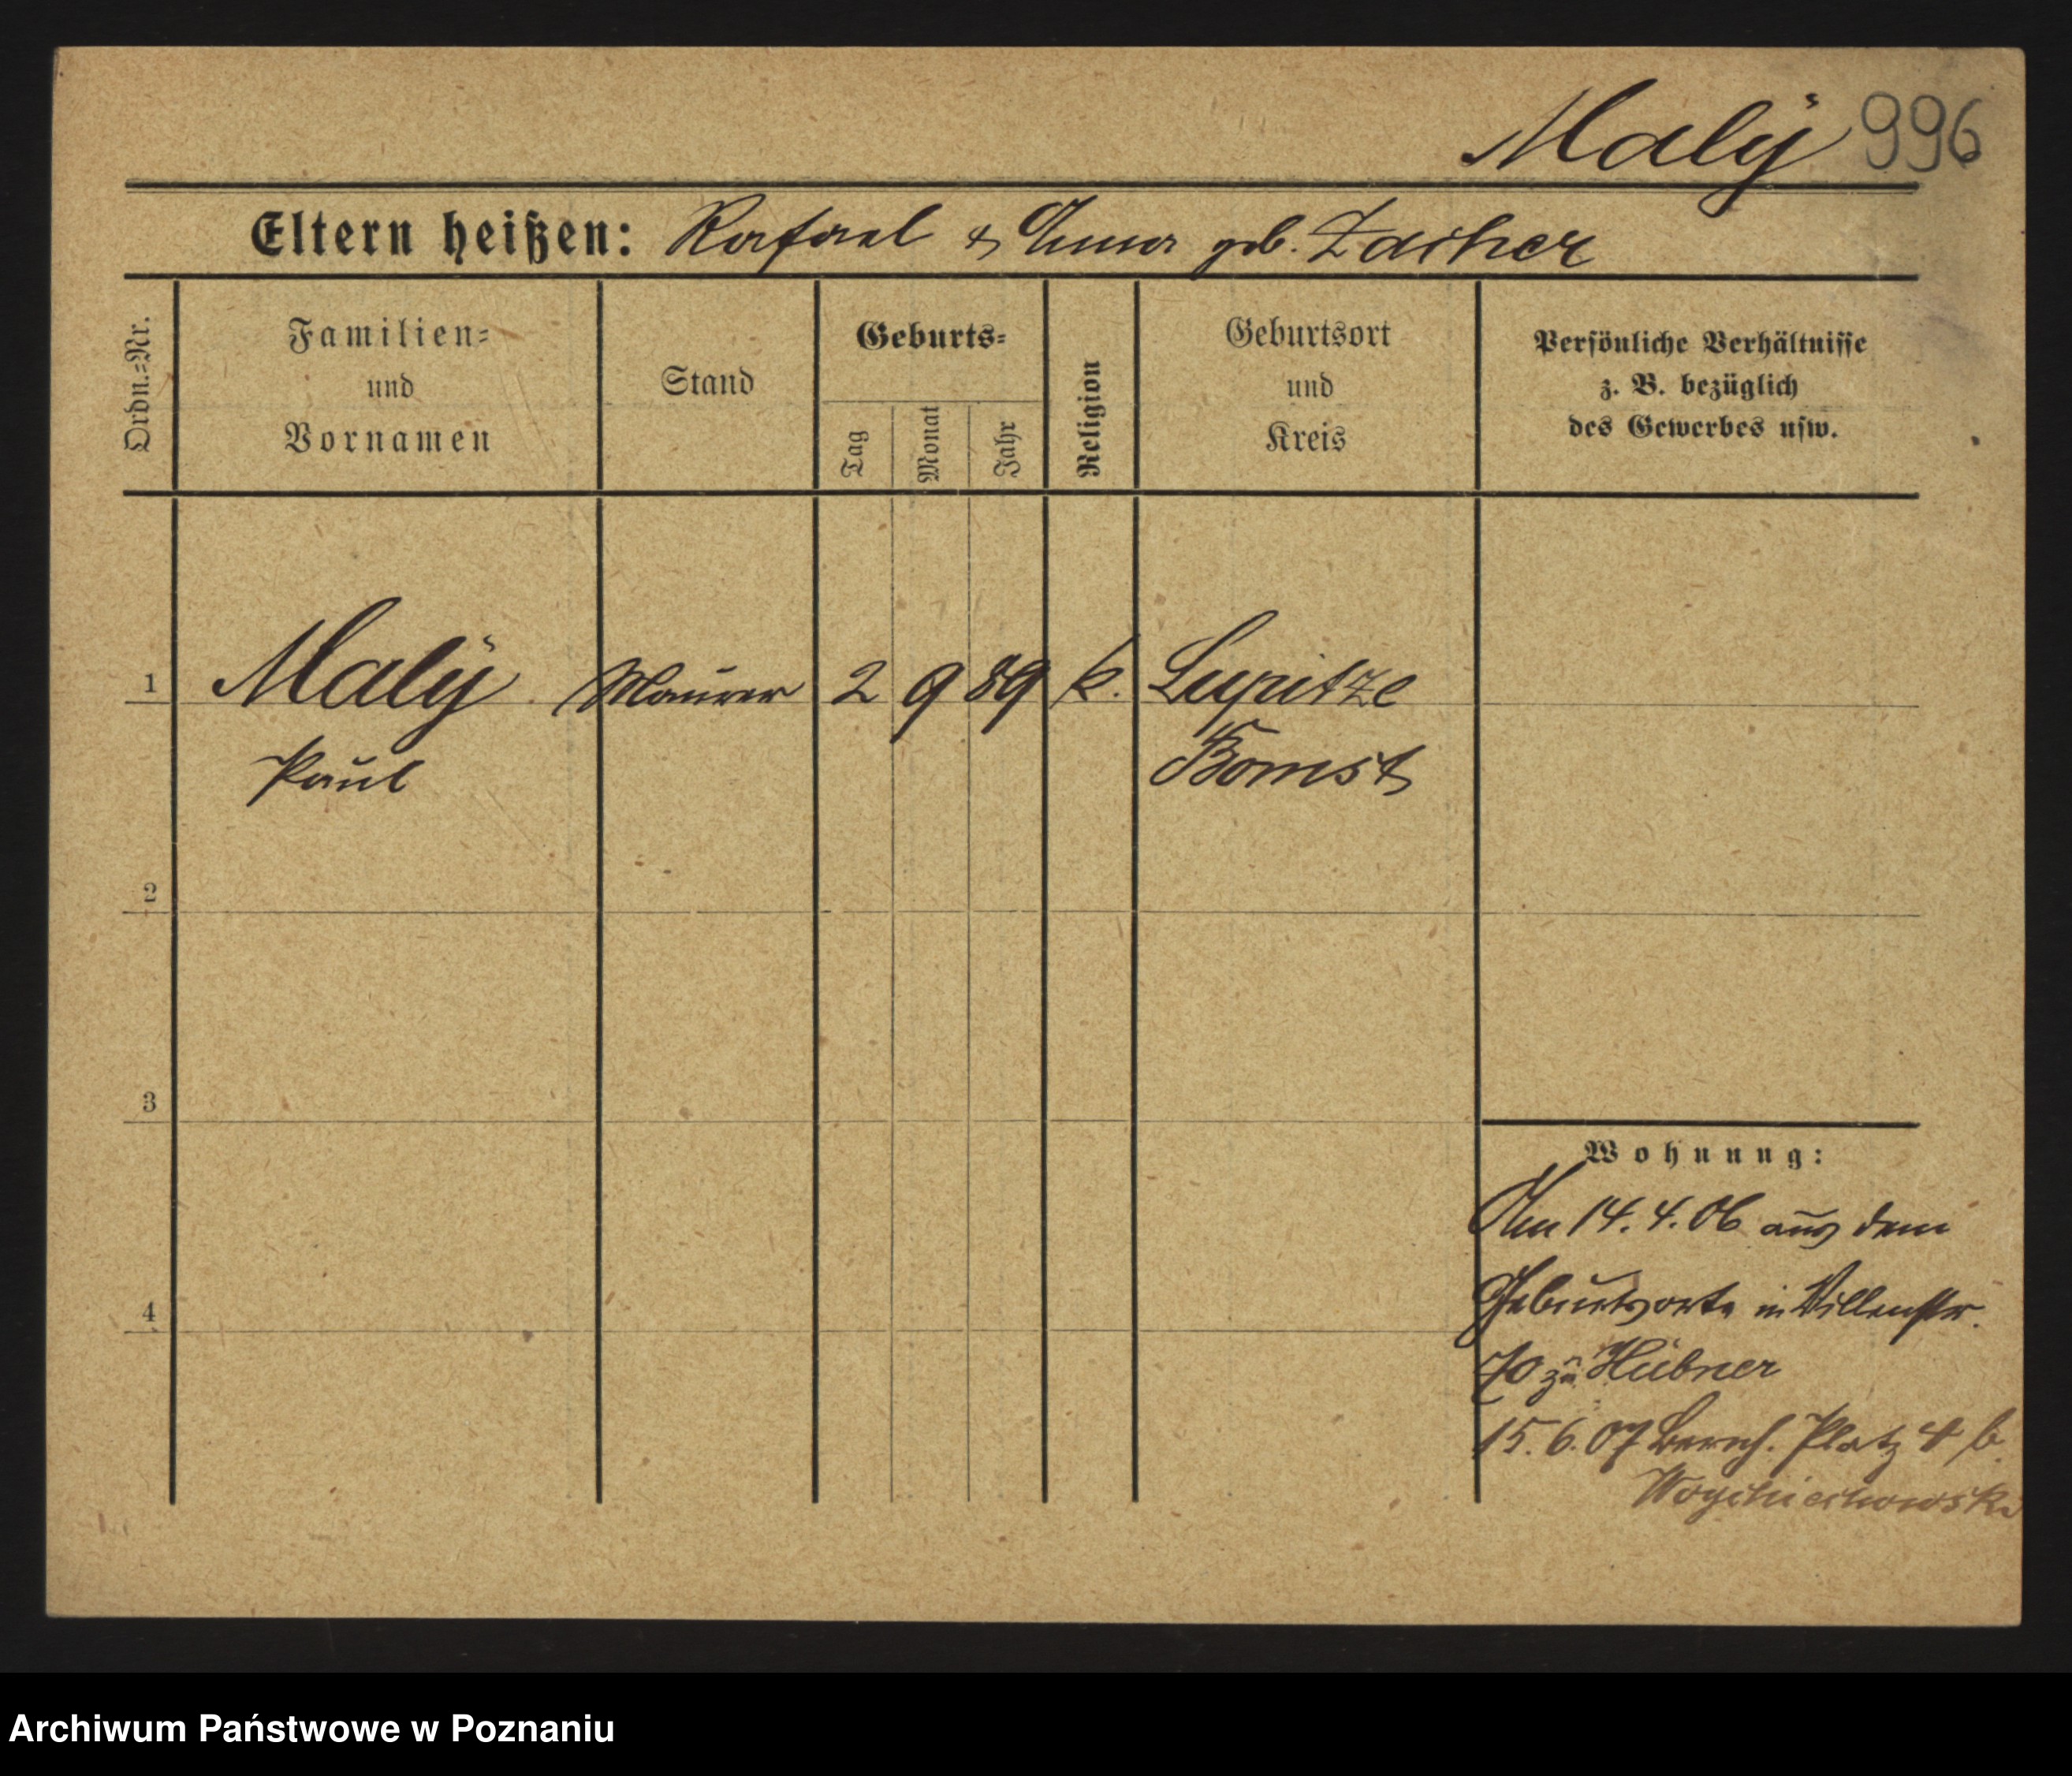 Malÿ 996
Eltern heißen: Rafael & Anna geb. Zacher
Ordn.=Nr.
Familien=
und
Vornamen
Stand
Geburts=
Tag
Monat
Jahr
Religion
Geburtsort
und
Kreis
Persönliche Verhältnisse
z. B. bezüglich
des Gewerbes usw.
1 Malÿ Maurer 2 9 89 k. Lupitze
Paul Bomst
2
3
4
Wohnung:
Am 14. 4. 06 aus dem
Geburtsorte in Villenstr.
70 zu Hübner
15. 6. 07 Bernh. Platz 4 b.
Woyciechowski
Archiwum Państwowe w Poznaniu